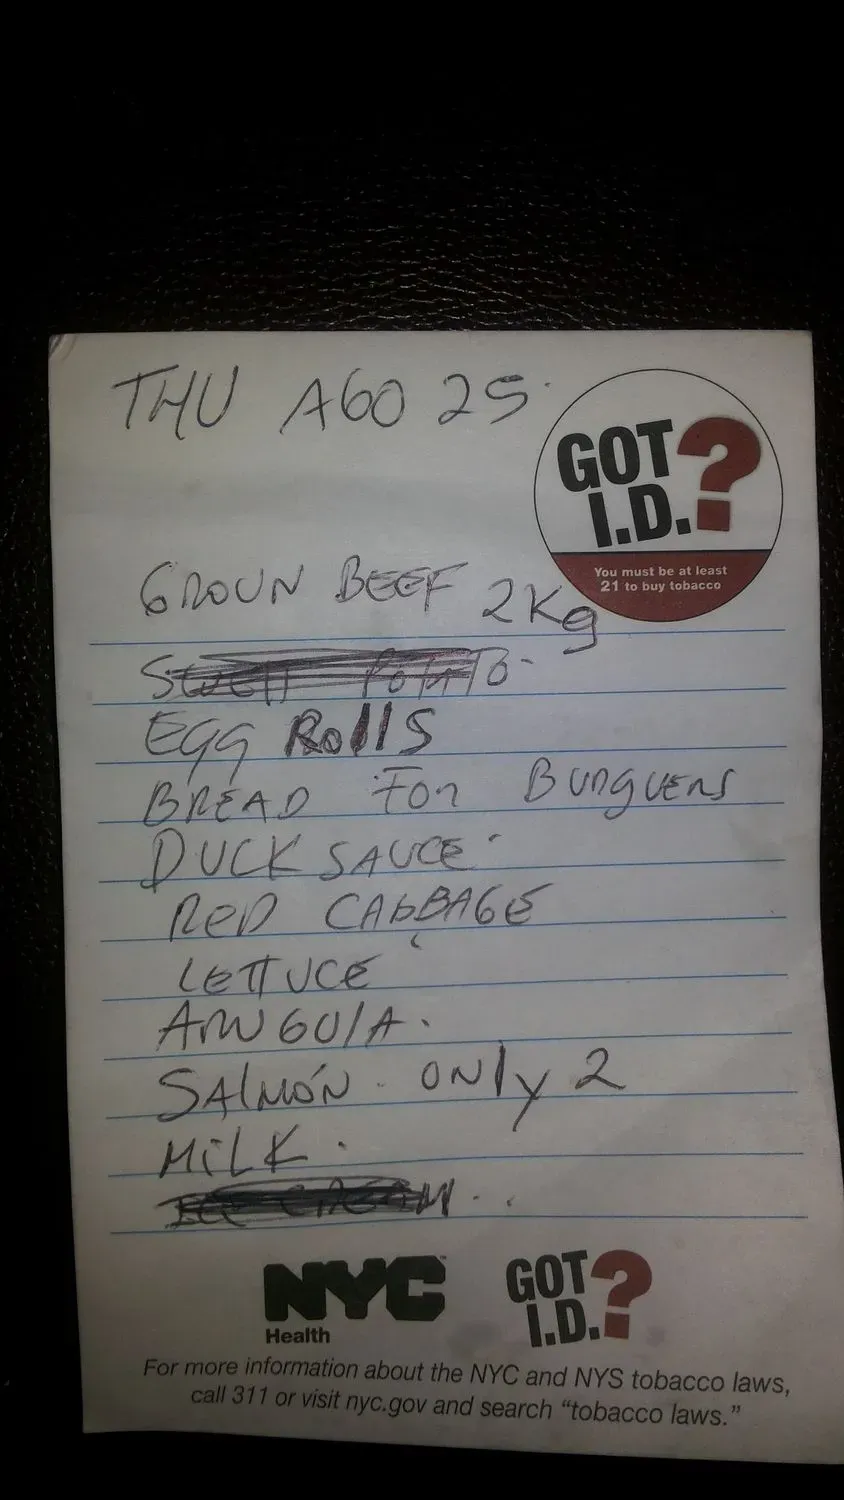 THU AGO 25
GOT
I.D.?
You must be at least
21 to buy tobacco
GROUN BEEF 2Kg
SWETT POTATO
EGG ROllS
BREAD FOR BURGUERS
DUCK SAUCE
RED CABBAGE
LETTUCE
ARUGULA.
SALMÓN. ONLY 2
MILK.
ICE CREAM...
NYC
Health
GOT
I.D.?
For more information about the NYC and NYS tobacco laws,
call 311 or visit nyc.gov and search “tobacco laws.”